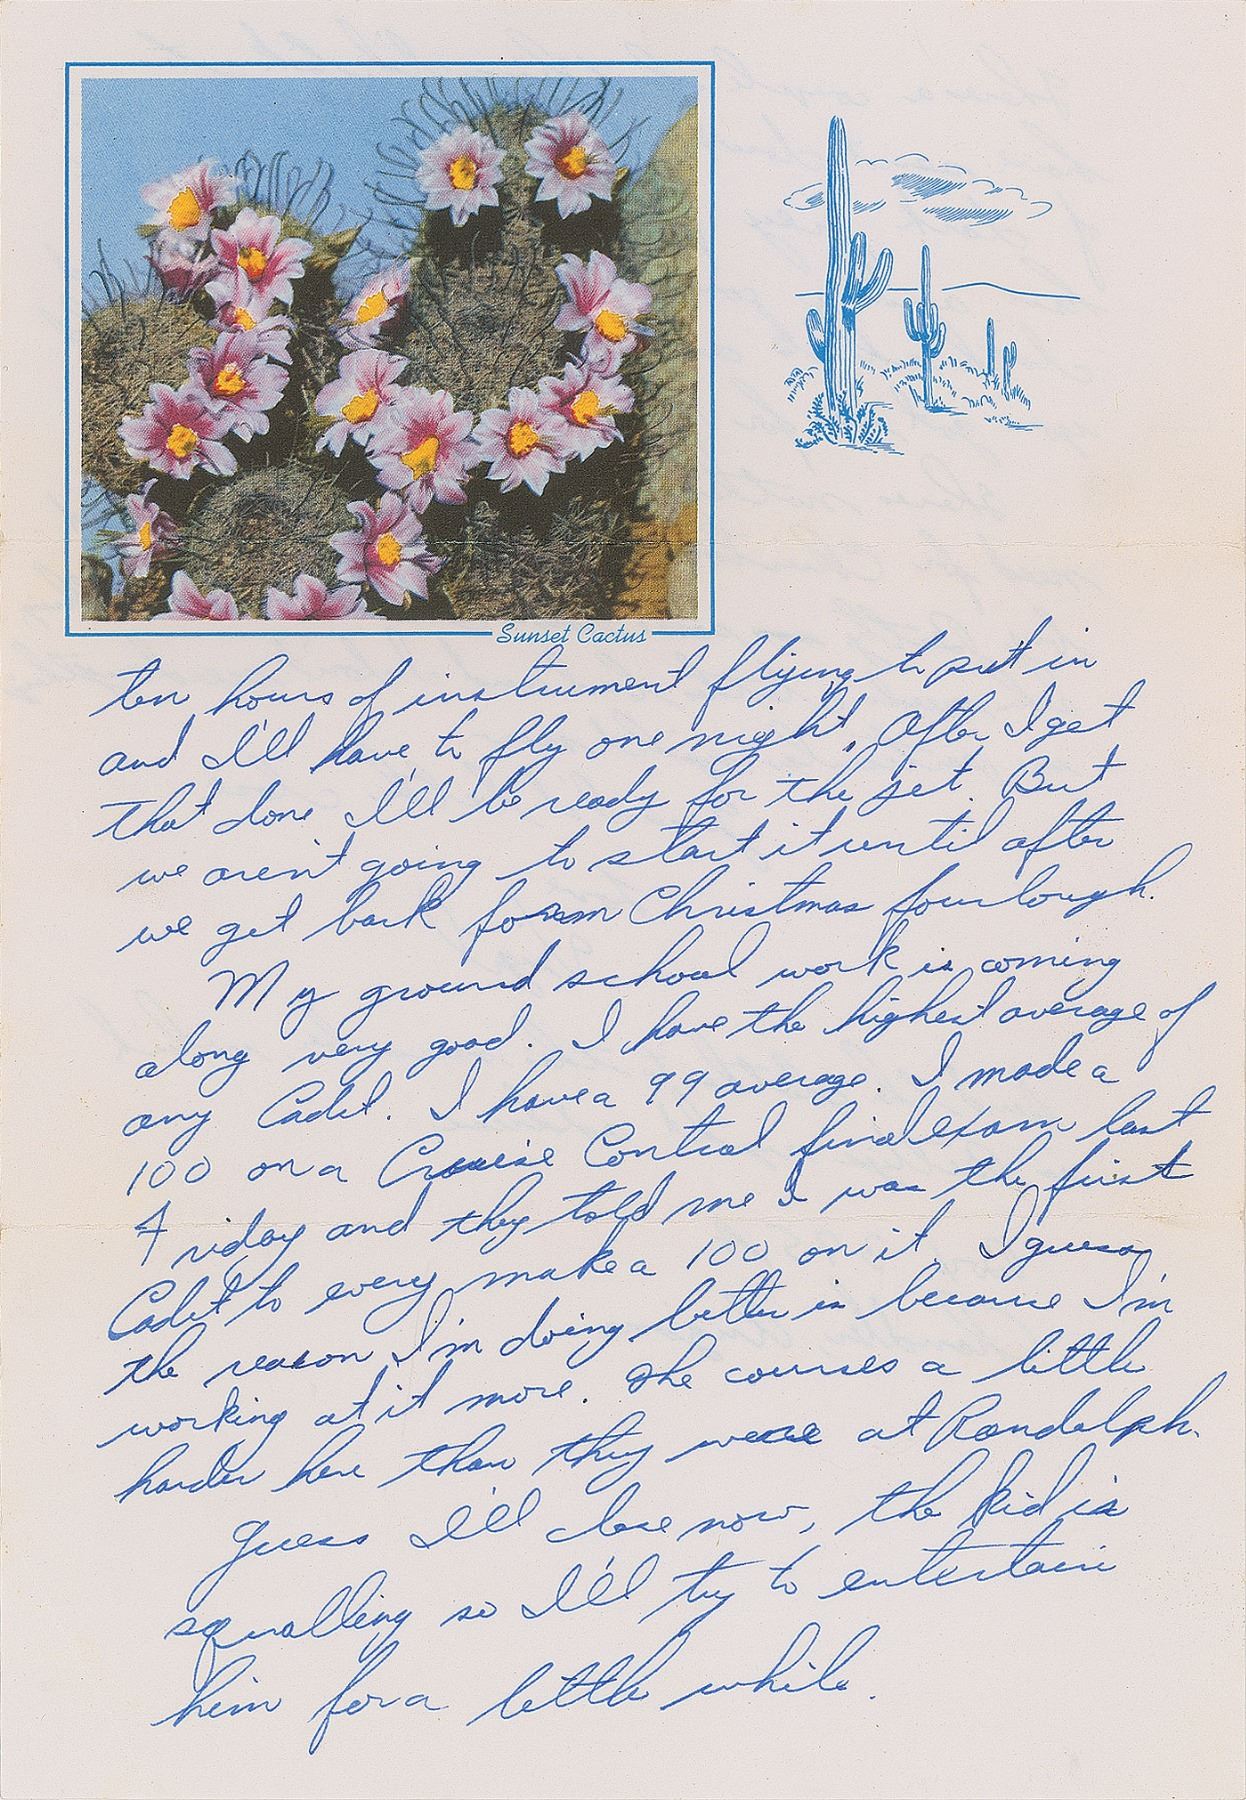 Sunset Cactus
ten hours of instrument flying to put in
and I'll have to fly one night. After I get
that done I'll be ready for the jet. But
we aren't going to start it until after
we get back from Christmas fourlough.
My ground school work is coming
along very good. I have the highest average of
any Cadet. I have a 99 average. I made a
100 on a Cruise Control final exam last
Friday and they told me I was the first
Cadet to every make a 100 on it. I guess
the reason I'm doing better is because I'm
working at it more. The courses a little
harder here than they were at Randolph.
Guess I'll close now, the kid is
squalling so I'll try to entertain
him for a little while.